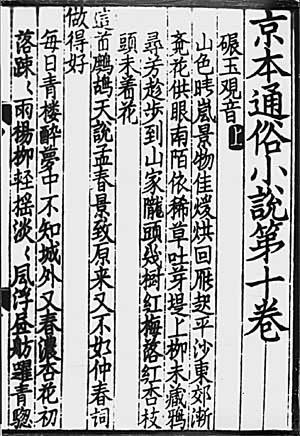 京本通俗小說第十卷
碾玉觀音上
山色晴嵐景物佳煖烘回雁起平沙東郊漸
看花供眼南陌依稀草吐芽堤上柳未藏鴉
尋芳趂步到山家隴頭幾樹紅梅落紅杏枝
頭未着花
這首鷓鴣天說孟春景致原来又不如仲春詞
做得好
每日青楼醉夢中不知城外又春濃杏花初
落疎〻雨楊柳輕摇淡〻風浮畫舫躍青驄